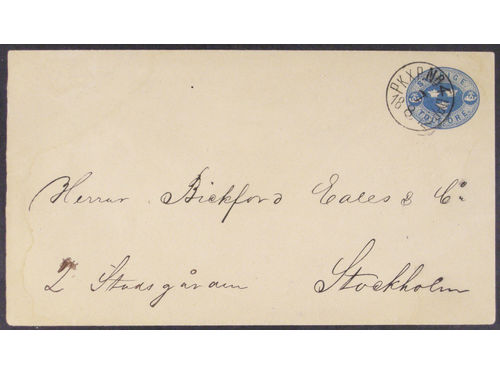 PKXP. Nº 4
SVERIGE
TOLF ÖRE
Herrar Bickford Eales & Co
2 Stadsgården Stockholm